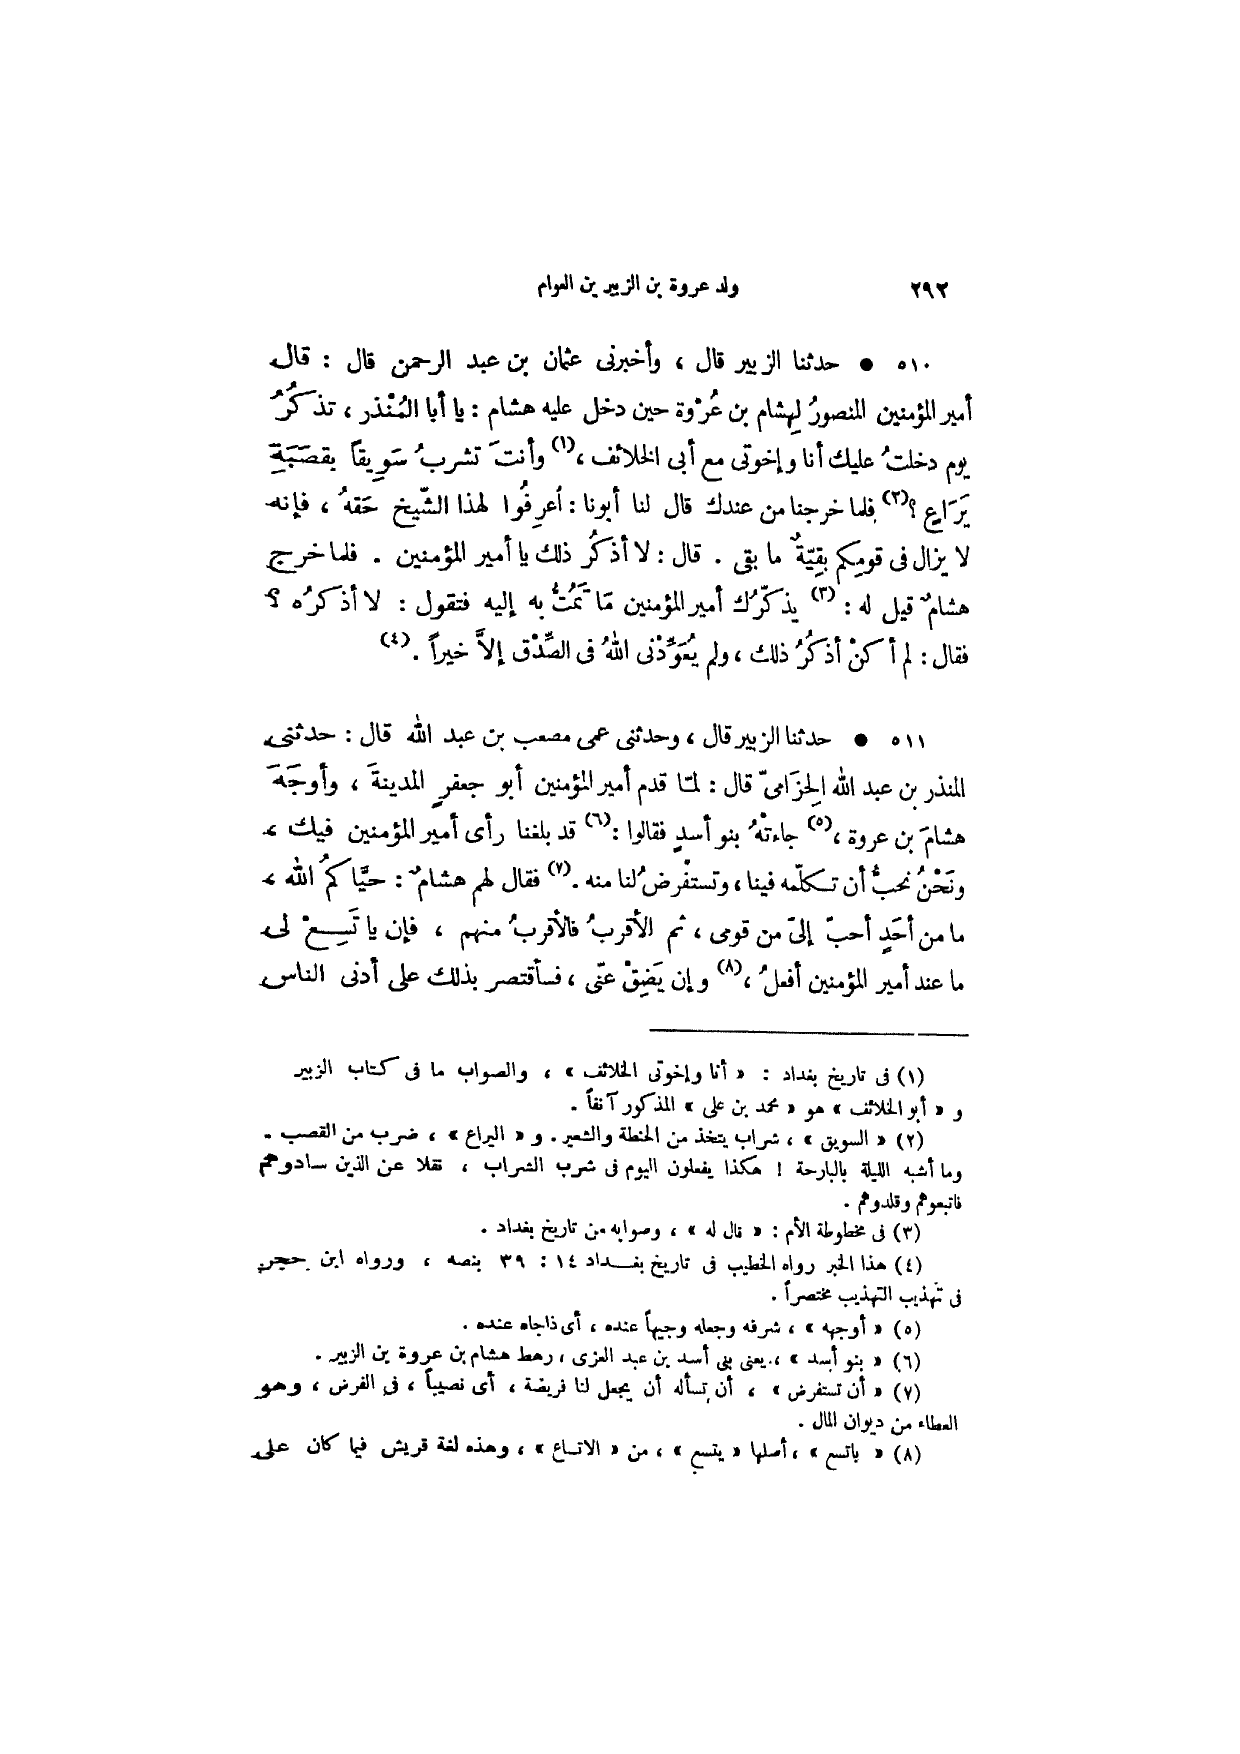 ٢٩٢ ولد عروة بن الزبير بن العوام
٥١٠ ● حدثنا الزبير قال ، وأخبرنى عثمان بن عبد الرحمن قال : قال
أمير المؤمنين المنصورُ لهِشام بن عُرْوة حين دخل عليه هشام : يا أبا المُنْذر ، تذكُرُ
يوم دخلتُ عليك أنا وإخوتى مع أبى الخلائف ،(١) وأنتَ تشربُ سَويقاً بقصَبَةِ
يَرَاعٍ ؟(٢) فلما خرجنا من عندك قال لنا أبونا : أعرِفُوا لهذا الشّيخ حَقهُ ، فإنه
لا يزال فى قومِكم بقِيّةٌ ما بقى . قال : لا أذكُر ذلك يا أمير المؤمنين . فلما خرج
هشامٌ قيل له :(٣) يذكّرُك أمير المؤمنين مَا تَمُتُّ به إليه فتقول : لا أذكرُه ؟
فقال : لم أكنْ أذكُرُ ذلك ، ولم يُعَوِّدْنى اللهُ فى الصِّدْق إلاَّ خيراً .(٤)
٥١١ ● حدثنا الزبير قال ، وحدثنى عمى مصعب بن عبد الله قال : حدثنى
المنذر بن عبد الله الحِزَامىّ قال : لمّا قدم أمير المؤمنين أبو جعفرٍ المدينةَ ، وأوجَهَ
هشامَ بن عروة ،(٥) جاءتْهُ بنو أسدٍ فقالوا :(٦) قد بلغنا رأى أمير المؤمنين فيك ،
ونَحْنُ نحبُّ أن تكلّمه فينا ، وتستفْرضُ لنا منه .(٧) فقال لهم هشامٌ : حيَّاكمُ الله ،
ما من أحَدٍ أحبّ إلىّ من قومى ، ثم الأقربُ فالأقربُ منهم ، فإن ياتَسِعْ لى
ما عند أمير المؤمنين أفعلُ ،(٨) وإن يَضِقْ عنّى ، فسأقتصر بذلك على أدنى الناس
(١) فى تاريخ بغداد : « أنا وإخوتى الخلائف » ، والصواب ما فى كتاب الزبير
و « أبو الخلائف » هو « محمد بن على » المذكور آنفاً .
(٢) « السويق » ، شراب يتخذ من الحنطة والشعير . و « اليراع » ، ضرب من القصب .
وما أشبه الليلة بالبارحة ! هكذا يفعلون اليوم فى شرب الشراب ، نقلا عن الذين سادوهم
فاتبعوهم وقلدوهم .
(٣) فى مخطوطة الأم : « قال له » ، وصوابه من تاريخ بغداد .
(٤) هذا الخبر رواه الخطيب فى تاريخ بغداد ١٤ : ٣٩ بنصه ، ورواه ابن حجر
فى تهذيب التهذيب مختصراً .
(٥) « أوجهه » ، شرفه وجعله وجيهاً عنده ، أى ذا جاه عنده .
(٦) « بنو أسد » ، يعنى بنى أسد بن عبد العزى ، رهط هشام بن عروة بن الزبير .
(٧) « أن تستفرض » ، أن تسأله أن يجعل لنا فريضة ، أى نصيباً ، فى الفرض ، وهو
العطاء من ديوان المال .
(٨) « ياتسع » ، أصلها « يتسع » ، من « الاتساع » ، وهذه لغة قريش فيما كان على